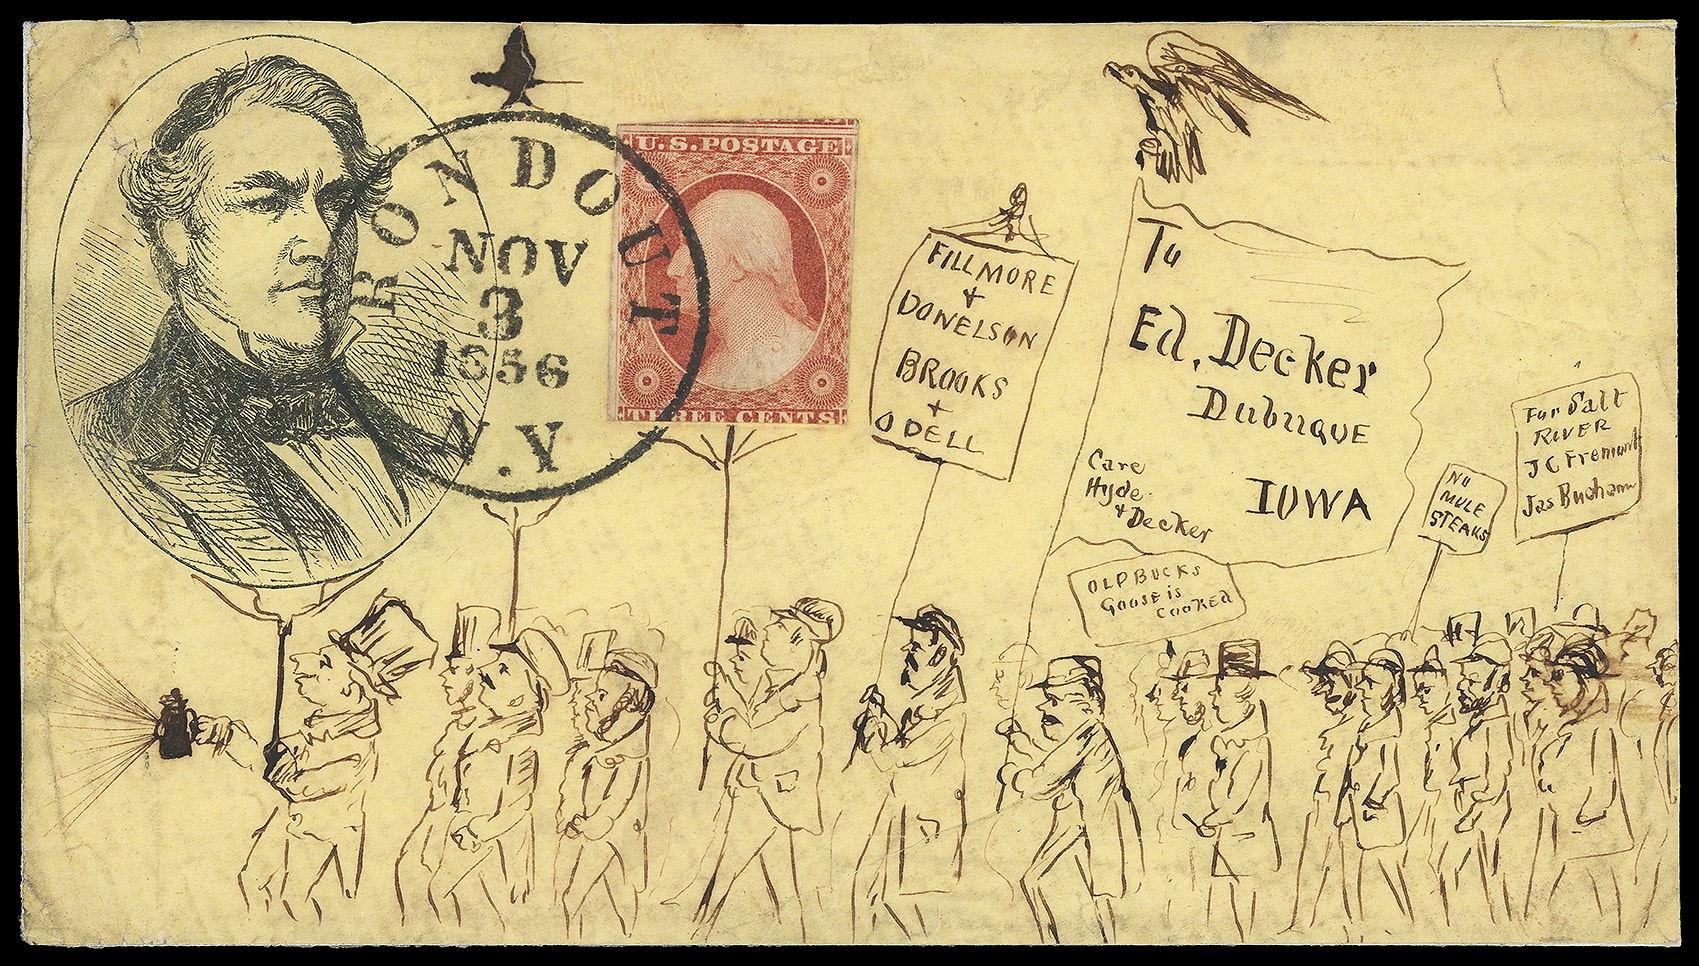 RONDOUT
NOV
3
1856
N.Y
U.S. POSTAGE
THREE CENTS
FILLMORE
+
DONELSON
BROOKS
+
ODELL
To
Ed. Decker
Dubuque
IOWA
Care
Hyde
+ Decker
OLD BUCKS
GOOSE is
COOKED
NO
MULE
STEAKS
For Salt
RIVER
JC Fremont
Jas Buchann